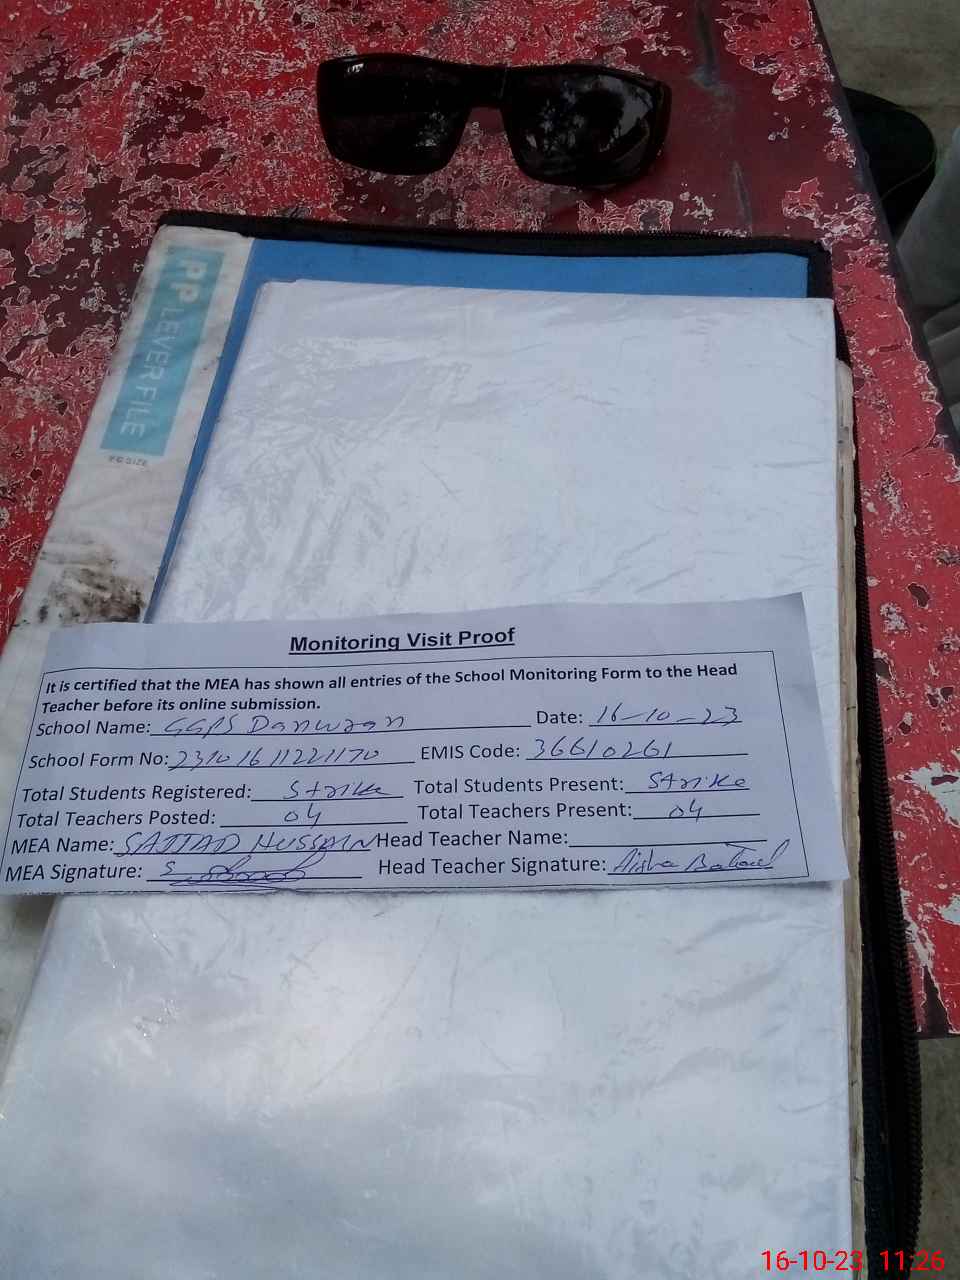 PP LEVER FILE
F.C SIZE
Monitoring Visit Proof
It is certified that the MEA has shown all entries of the School Monitoring Form to the Head
Teacher before its online submission.
School Name: GGPS Danwran Date: 16-10-23
School Form No: 23101611221170 EMIS Code: 36610261
Total Students Registered: Strike Total Students Present: Strike
Total Teachers Posted: 04 Total Teachers Present: 04
MEA Name: SAJJAD HUSSAIN Head Teacher Name:
MEA Signature: Head Teacher Signature: Aisha Batool
16-10-23 11:26